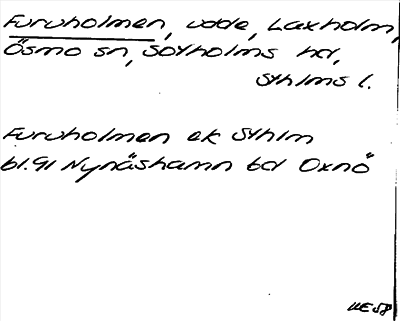 Furuholmen, udde, Laxholm,
Ösmo sn, Sotholms hd,
Sthlms l.
Furuholmen ek Sthlm
bl. 91 Nynäshamn bd Oxnö
UE 58